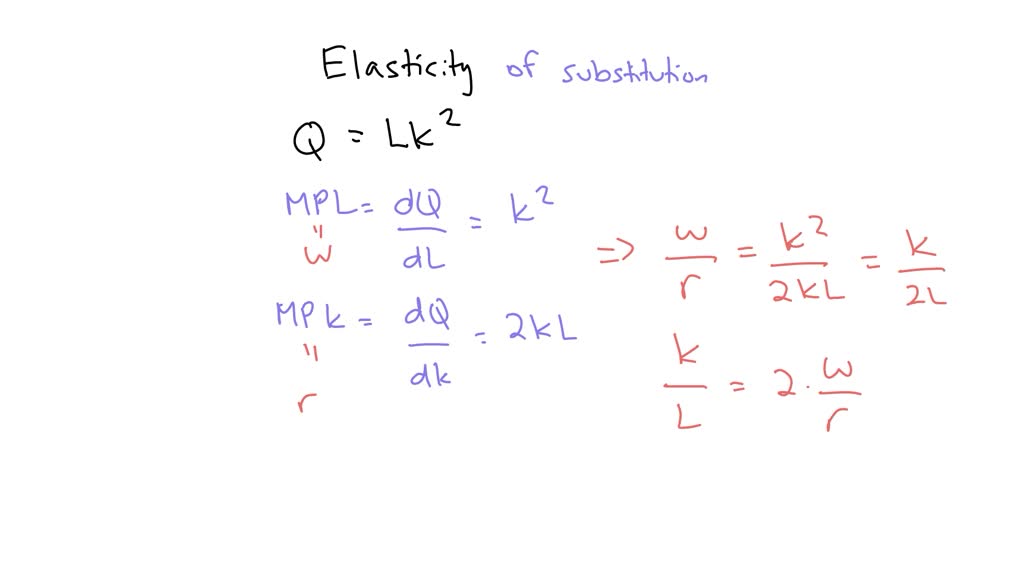 Elasticity of substitution
Q = Lk²
MPL = dQ/dL = k²
"
w
MPk = dQ/dk = 2kL
"
r
=> w/r = k²/2kL = k/2L
k/L = 2 · w/r